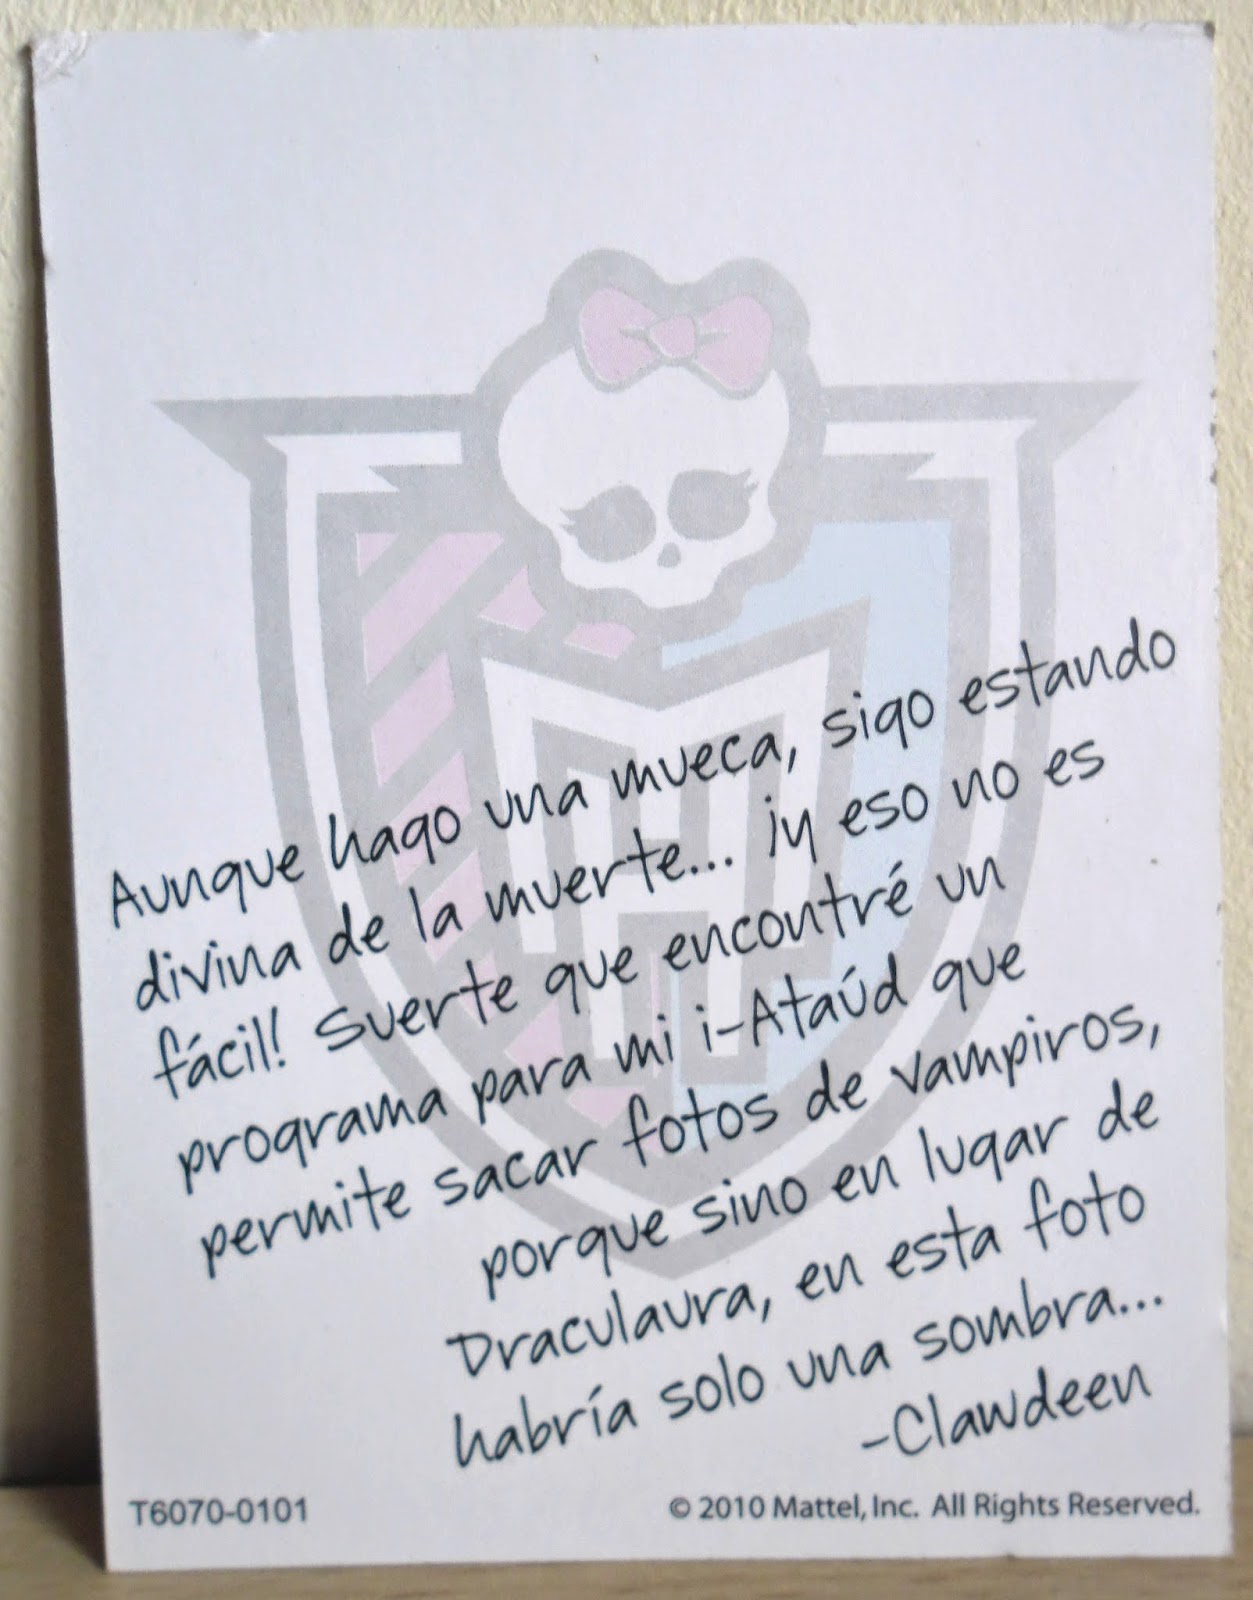 Aunque hago una mueca, sigo estando
divina de la muerte... ¡y eso no es
fácil! Suerte que encontré un
programa para mi i-Ataúd que
permite sacar fotos de vampiros,
porque sino en lugar de
Draculaura, en esta foto
habría solo una sombra...
-Clawdeen
T6070-0101
© 2010 Mattel, Inc. All Rights Reserved.